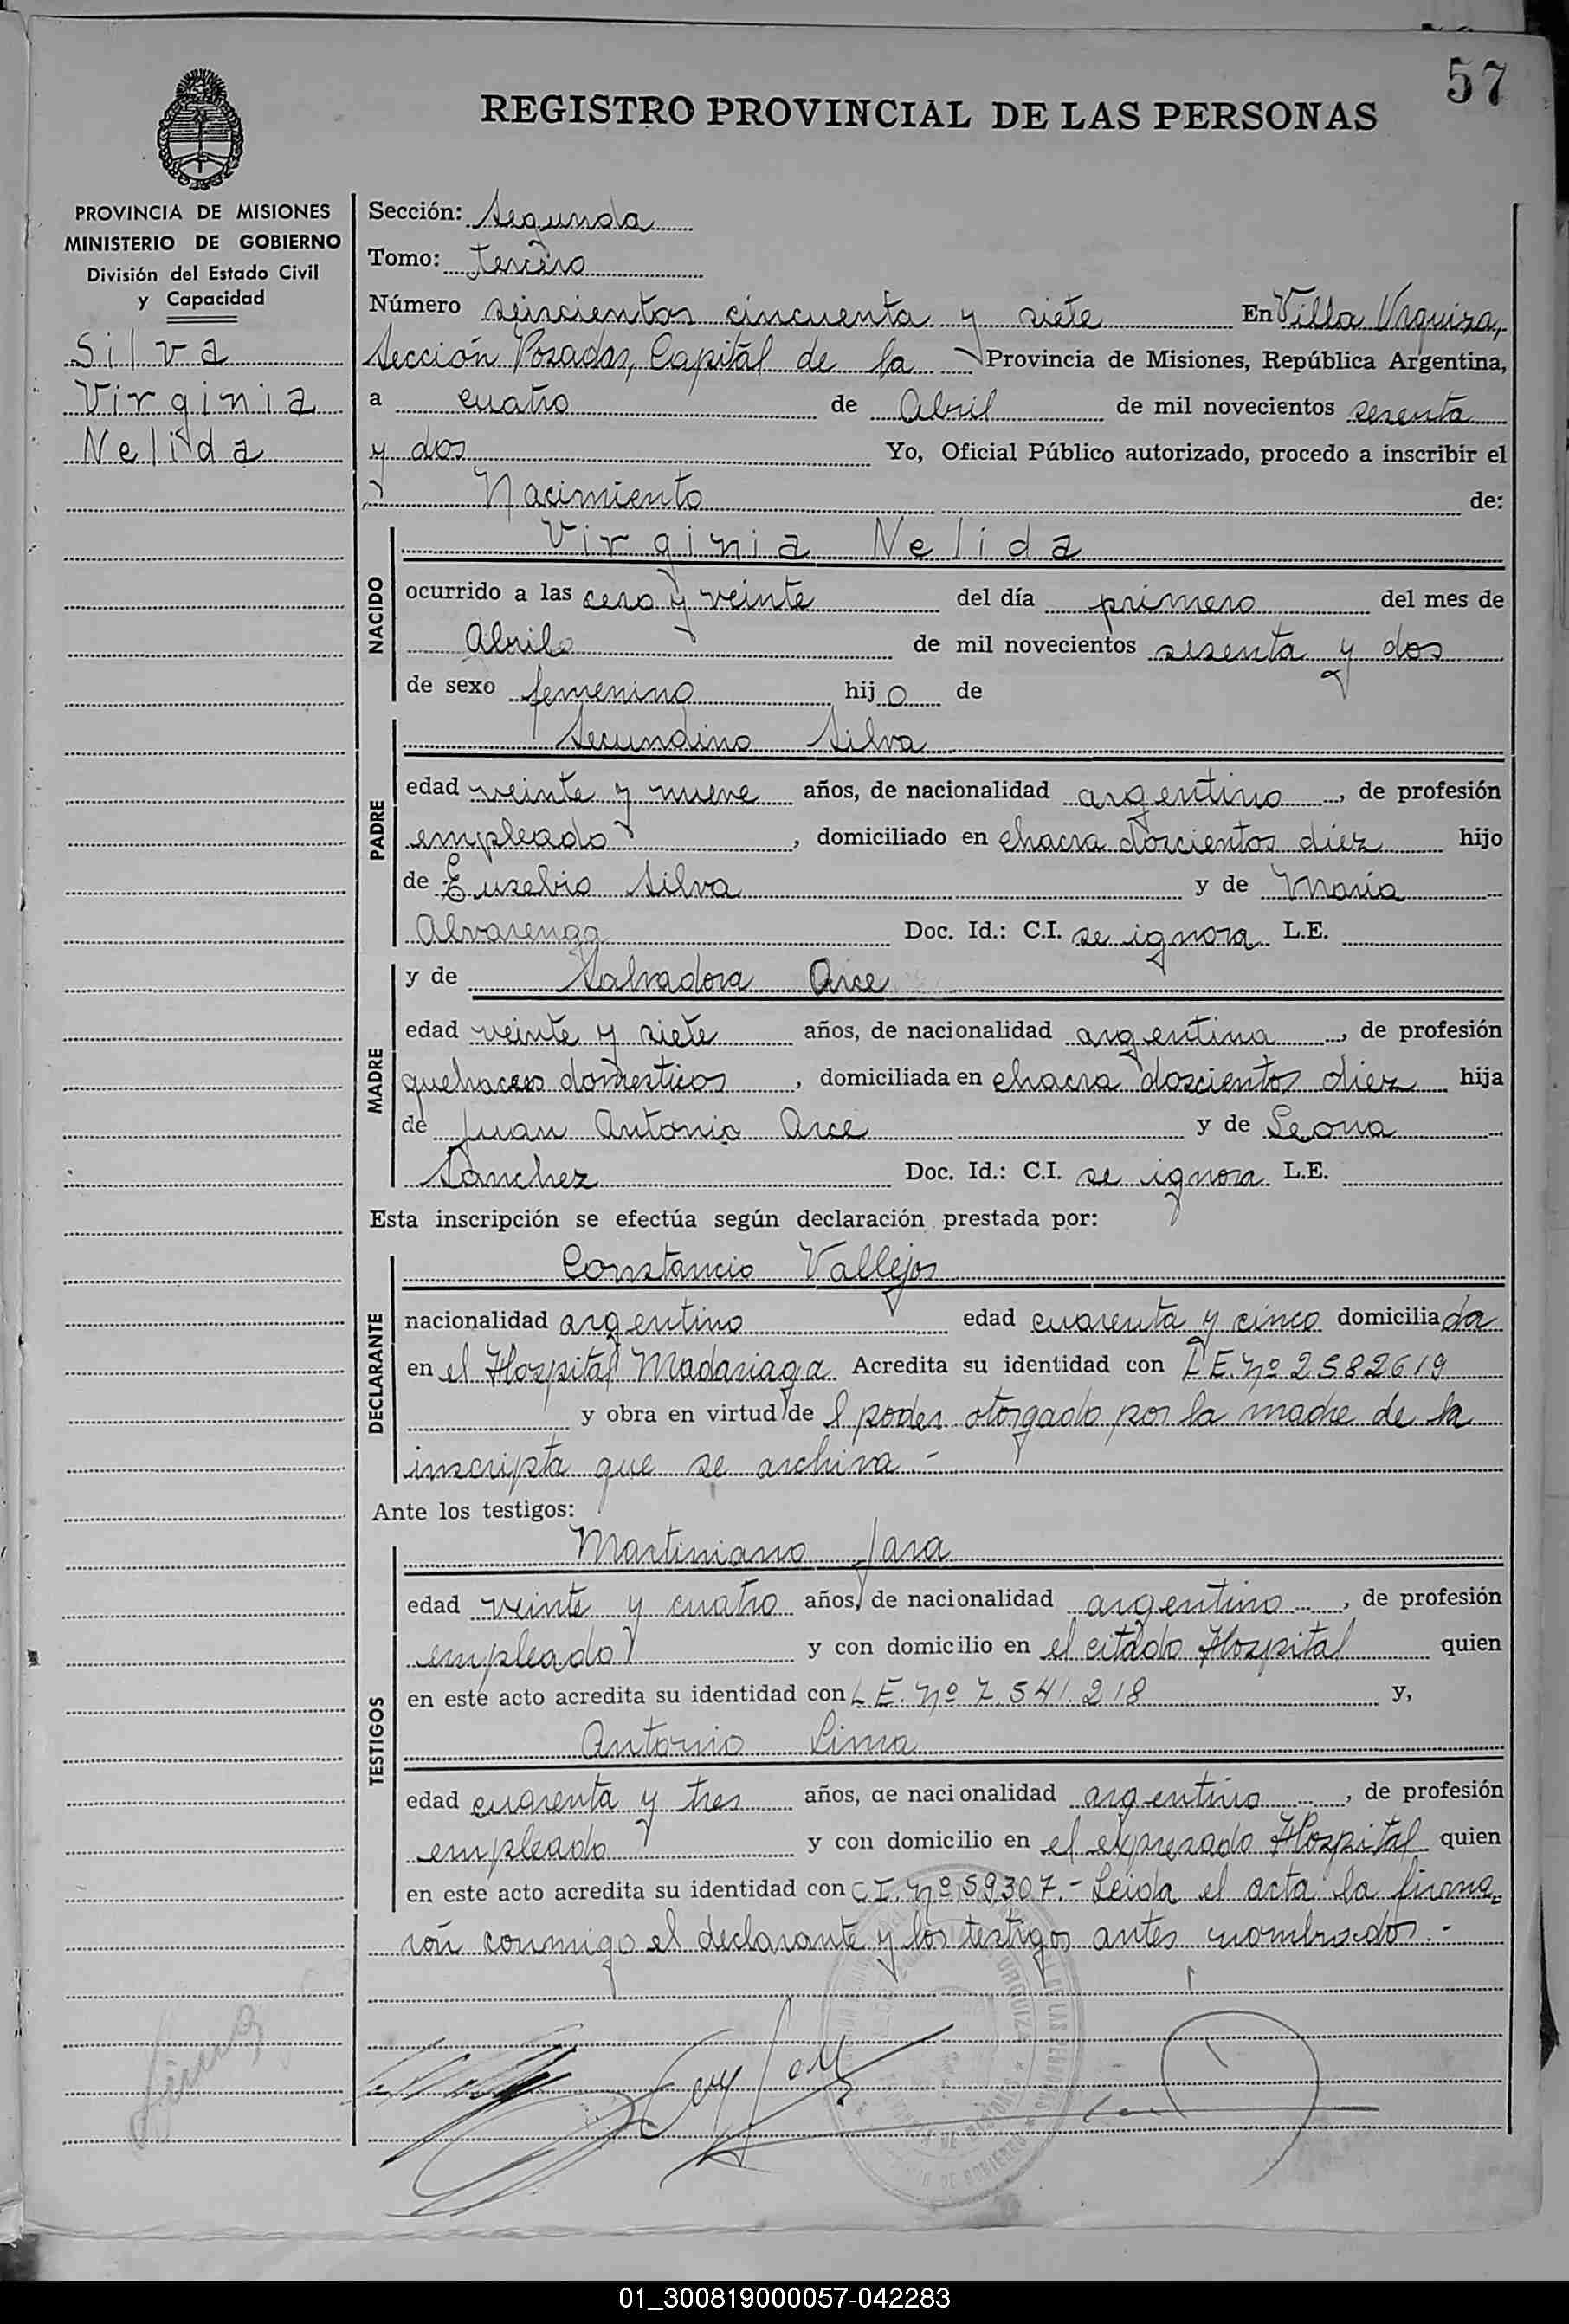 57
REGISTRO PROVINCIAL DE LAS PERSONAS
PROVINCIA DE MISIONES
MINISTERIO DE GOBIERNO
División del Estado Civil
y Capacidad
Silva
Virginia
Nelida
Sección: Segunda
Tomo: Tercero
Número seiscientos cincuenta y siete En Villa Urquiza,
Sección Posadas, Capital de la Provincia de Misiones, República Argentina,
a cuatro de Abril de mil novecientos sesenta
y dos Yo, Oficial Público autorizado, procedo a inscribir el
Nacimiento de:
NACIDO
Virginia Nelida
ocurrido a las cero y veinte del día primero del mes de
Abril de mil novecientos sesenta y dos
de sexo femenino hijo de
PADRE
Secundino Silva
edad veinte y nueve años, de nacionalidad argentino, de profesión
empleado, domiciliado en chacra doscientos diez hijo
de Eusebio Silva y de María
Alvarenga Doc. Id.: C.I. se ignora L.E.
MADRE
y de Salvadora Arce
edad veinte y siete años, de nacionalidad argentina, de profesión
quehaceres domesticos, domiciliada en chacra doscientos diez hija
de Juan Antonio Arce y de Leona
Sanchez Doc. Id.: C.I. se ignora L.E.
Esta inscripción se efectúa según declaración prestada por:
DECLARANTE
Constancio Vallejos
nacionalidad argentino edad cuarenta y cinco domiciliado
en el Hospital Madariaga Acredita su identidad con L.E. Nº 2582619
y obra en virtud del poder otorgado por la madre de la
inscripta que se archiva.-
Ante los testigos:
TESTIGOS
Martiniano Jara
edad veinte y cuatro años, de nacionalidad argentino, de profesión
empleado y con domicilio en el citado Hospital quien
en este acto acredita su identidad con L.E. Nº 7.541.218 y,
Antonio Lima
edad cuarenta y tres años, de nacionalidad argentino, de profesión
empleado y con domicilio en el expresado Hospital quien
en este acto acredita su identidad con C.I. Nº 59307.- Leida el acta la firma-
rón conmigo el declarante y los testigos antes nombrados.-
01_300819000057-042283